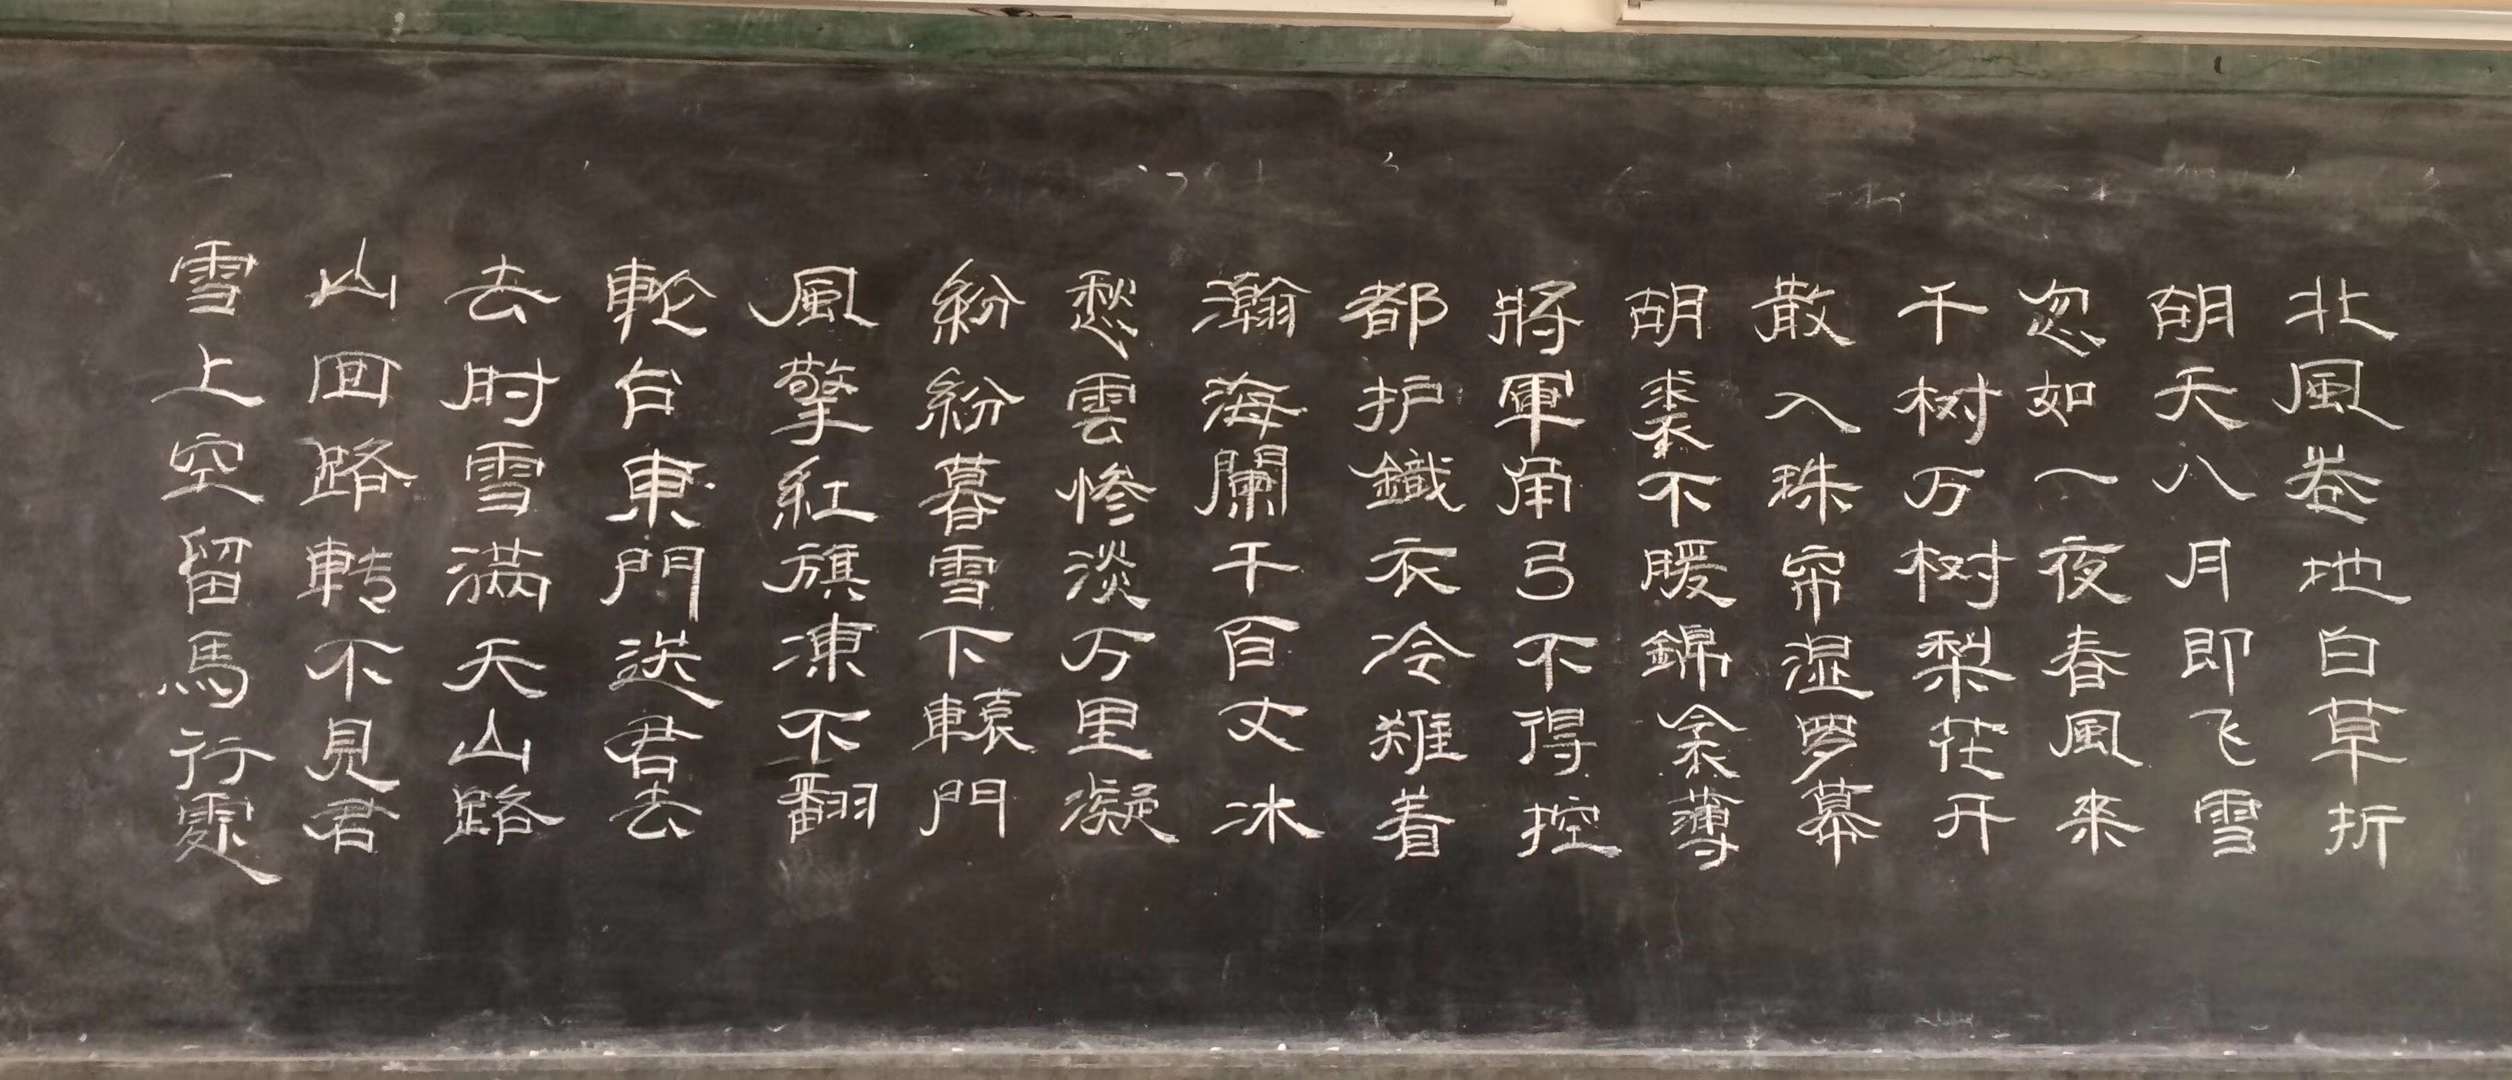 北風卷地白草折
胡天八月即飞雪
忽如一夜春風来
千树万树梨花开
散入珠帘湿罗幕
胡裘不暖錦衾薄
將軍角弓不得控
都护鐵衣冷难着
瀚海闌干百丈冰
愁雲惨淡万里凝
紛紛暮雪下轅門
風掣紅旗凍不翻
輪台東門送君去
去时雪满天山路
山回路转不見君
雪上空留馬行處